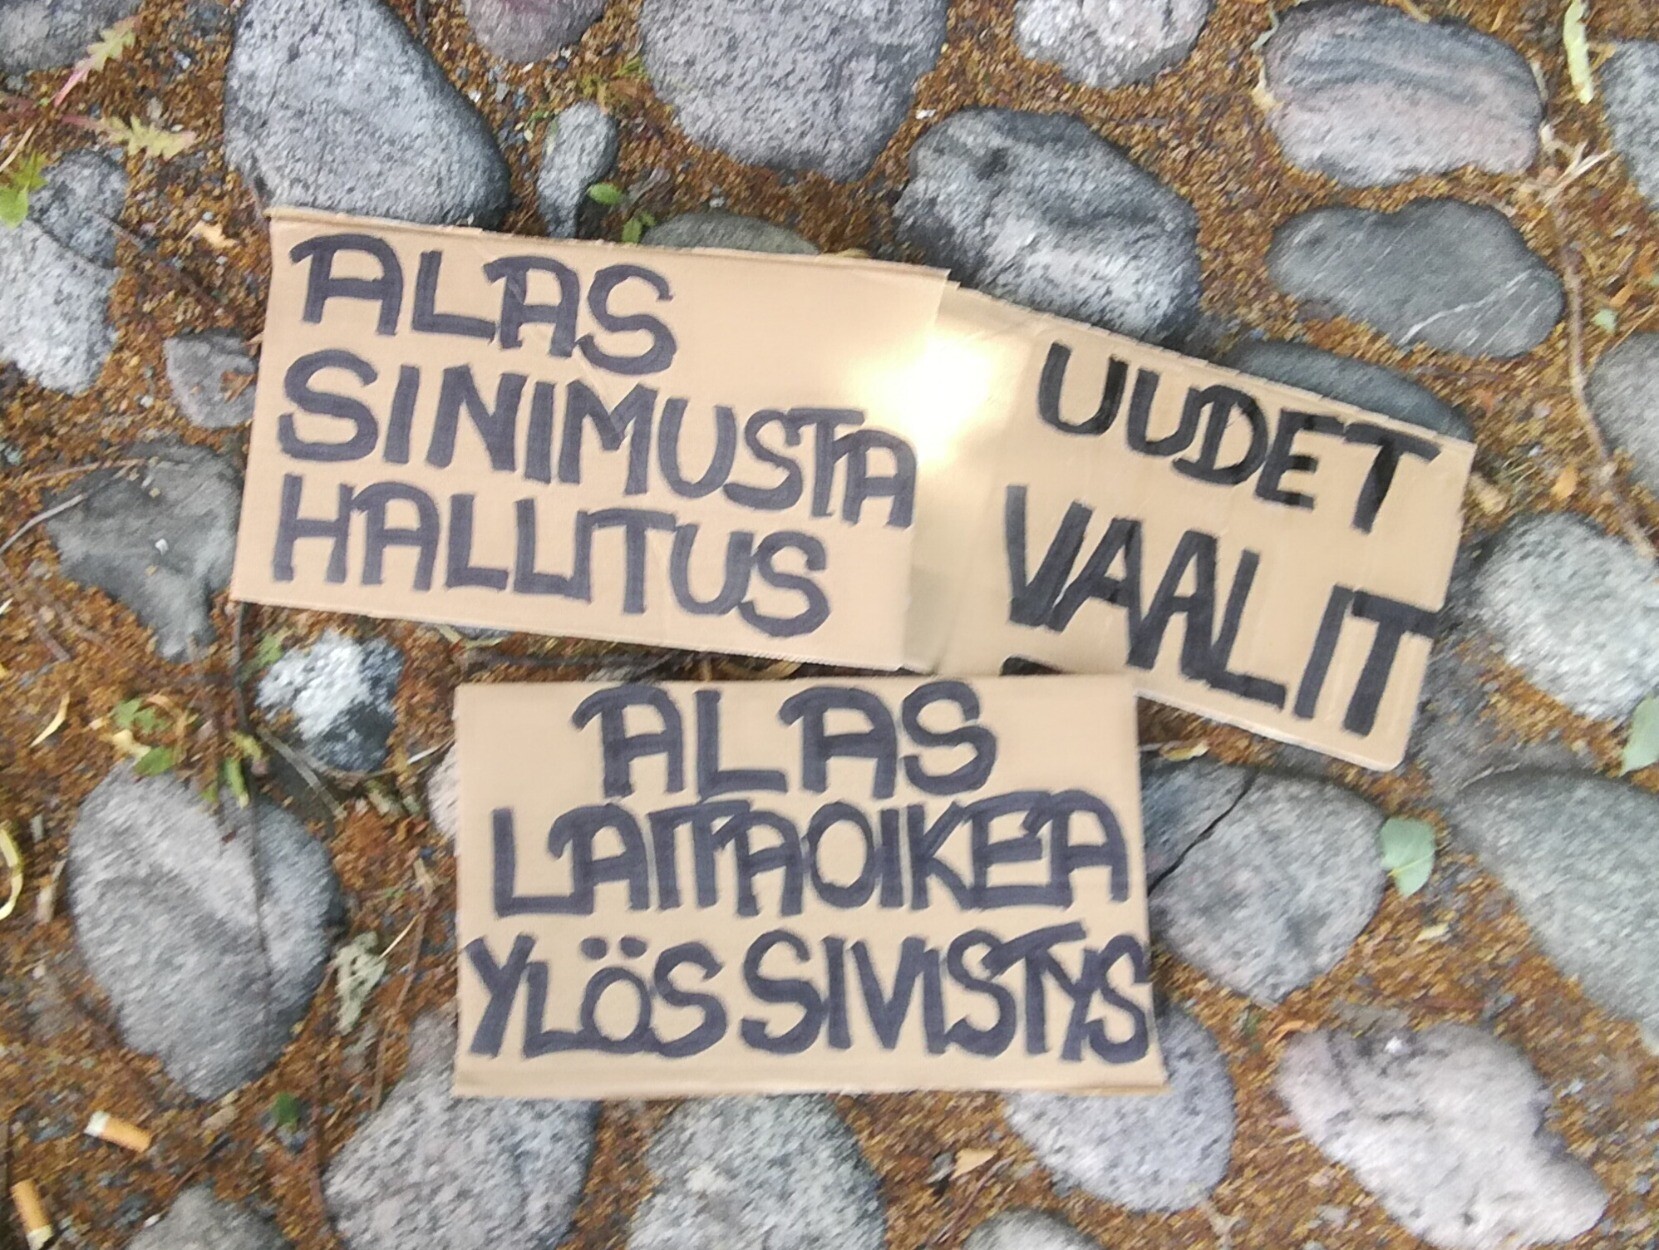 ALAS
SINIMUSTA
HALLITUS
UUDET
VAALIT
ALAS
LAITAOIKEA
YLÖS SIVISTYS